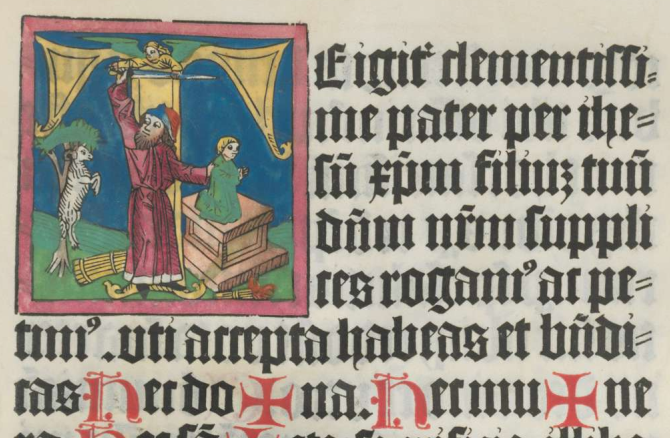 E igit᷒ clementissi=
me pater per ihe=
sū xp̄m filiuꝫ tuū
dn̄m nr̄m suppli
ces rogamꝰ ac pe=
timꝰ .uti accepta habeas et bn̄di=
cas Hec do✠na. Hec mu✠ne